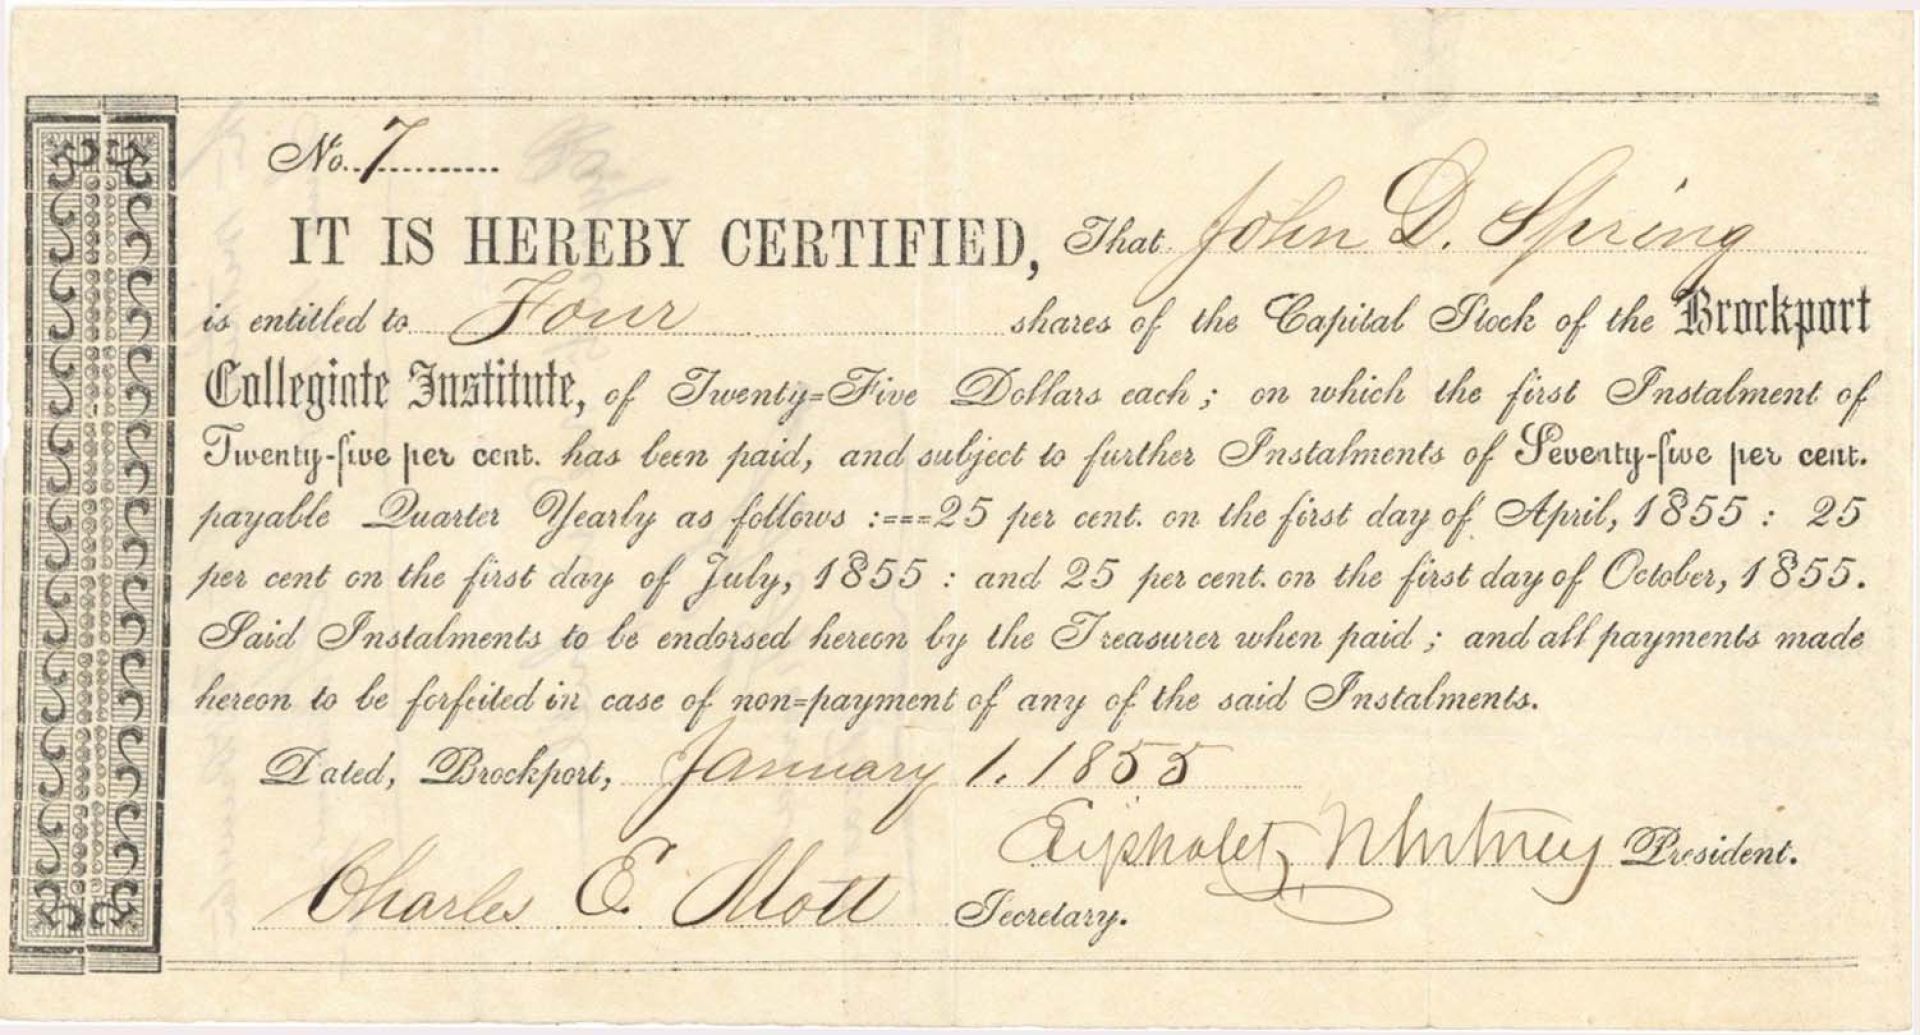 No. 7
IT IS HEREBY CERTIFIED, That John D. Spring
is entitled to Four shares of the Capital Stock of the Brockport
Collegiate Institute, of Twenty-Five Dollars each; on which the first Instalment of
Twenty-five per cent. has been paid, and subject to further Instalments of Seventy-five per cent.
payable Quarter Yearly as follows :===25 per cent. on the first day of April, 1855 : 25
per cent on the first day of July, 1855 : and 25 per cent. on the first day of October, 1855.
Said Instalments to be endorsed hereon by the Treasurer when paid ; and all payments made
hereon to be forfeited in case of non=payment of any of the said Instalments.
Dated, Brockport, January 1. 1855
Eliphalet Whitney President.
Charles E. Mott Secretary.